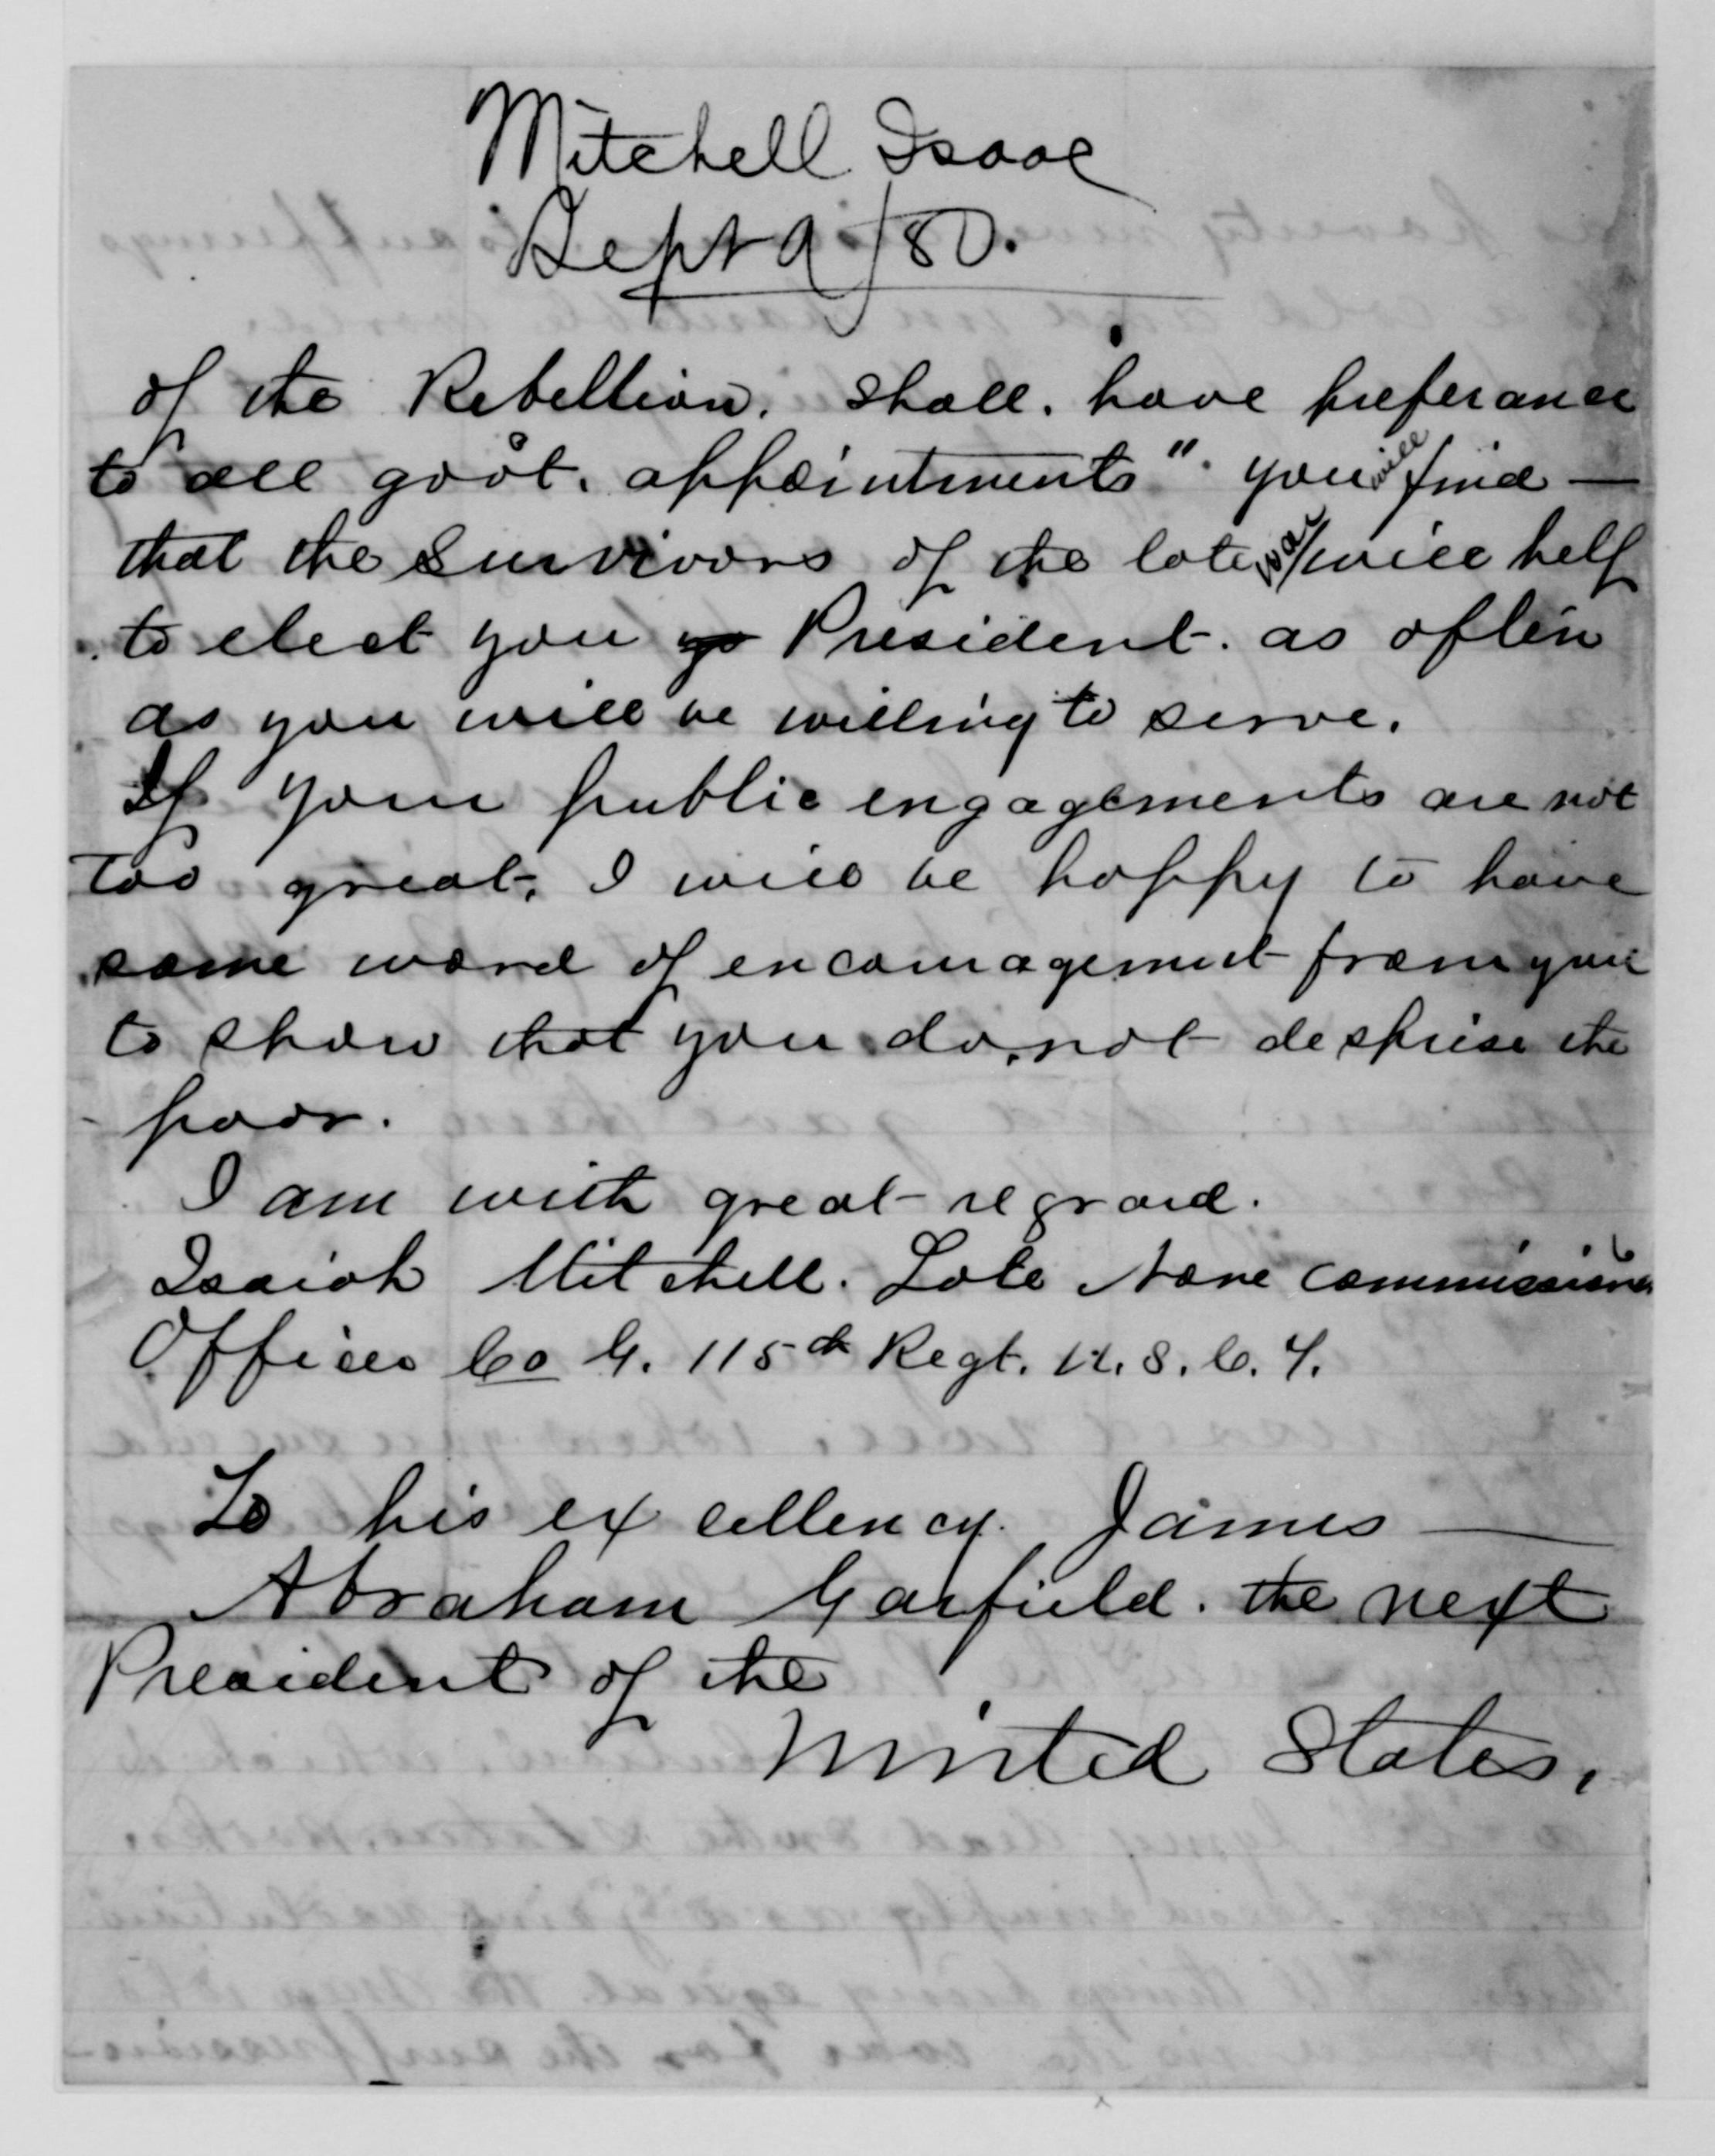 Mitchell Isaac
Sept 9/80.
of the Rebellion. Shall. have preferance
to all govt. appointments". you will find —
that the Survivors of the late war will help
to elect you yo President. as often
as you will be willing to serve.
If your public engagements are not
too great, I will be happy to have
some word of encouragement from you
to show that you do, not despise the
poor.
I am with great regard.
Isaiah Mitchell. Late None Commission
Officer Co G. 115th Regt. U. S. C. T.
To his excellency. James —
Abraham Garfield. the next
President of the
United States.